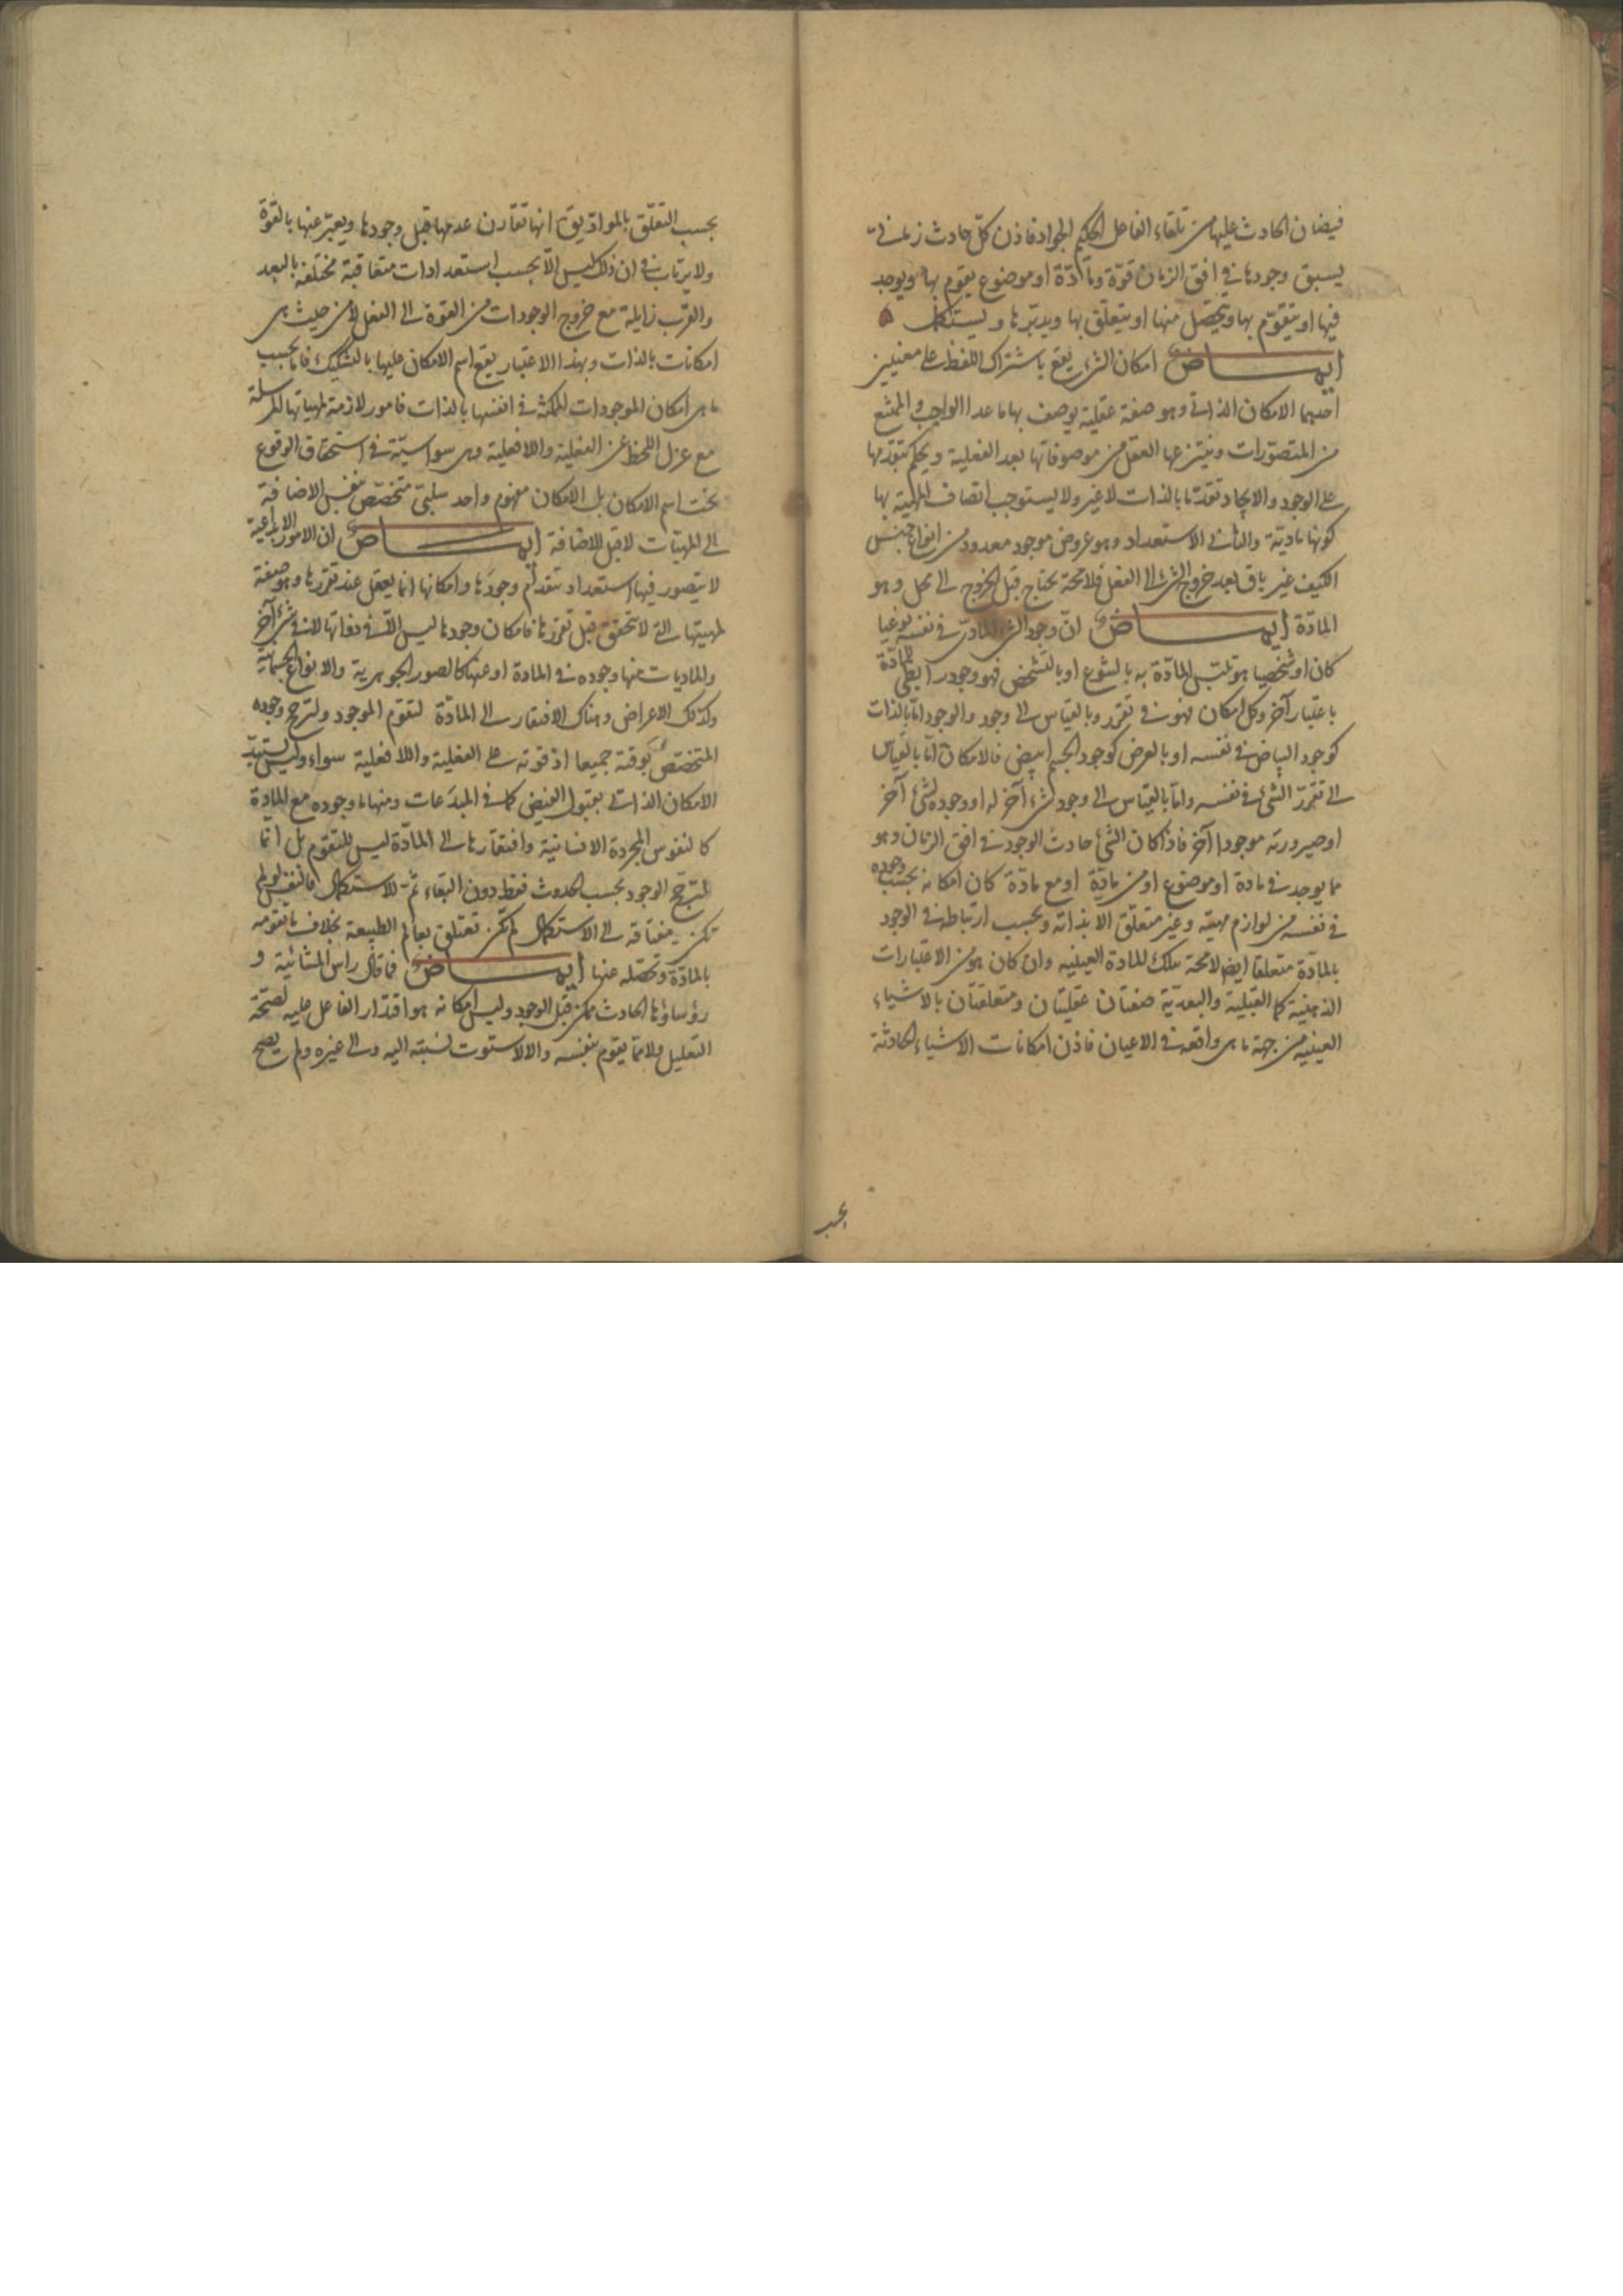 فيضان الحادث عليها من تلقاء الفاعل الحكيم الجواد فاذن كلّ حادث زماني
يسبق وجودها في افق الزمان قوّة ومادّة او موضوع يقوم بها ويوجد
فيها او يتقوّم بها ويتحصّل منها او يتعلّق بها ويدبّرها ويستكمل
ايماض امكان الشيء يقع باشتراك اللفظ على معنيين
احدهما الامكان الذاتي وهو صفة عقلية يوصف بها ما عدا الواجب والممتنع
من المتصوّرات وينتزعها العقل من موصوفاتها بعد الفعلية ويحكم بتقدّمها
على الوجود والايجاد تقدّما بالذات لا غير ولا يستوجب اتصاف المهية بها
كونها مادية والثاني الاستعداد وهو عرض موجود معدود من انواع جنس
الكيف غير باق بعد خروج الشيء الى الفعل فلا محة يحتاج قبل الخروج الى محل وهو
المادّة ايماض انّ وجود الشيء المادّي في نفسه نوعيا
كان او شخصيا هو تلبّس المادّة به بالنوع او بالتشخص فهو وجود رابطي للمادّة
باعتبار آخر وكل امكان فهو في تقرر وبالقياس الى وجود والوجود امّا بالذات
كوجود البياض في نفسه او بالعرض كوجود الجسم ابيض فالامكان امّا بالقياس
الى تقرّر الشيء في نفسه وامّا بالقياس الى وجود شيء آخر له او وجوده لشيء آخر
او صيرورته موجودا آخر فاذا كان الشيء حادث الوجود في افق الزمان وهو
مما يوجد في مادة او موضوع او من مادّة او مع مادّة كان امكانه بحسب وجوده
في نفسه من لوازم مهيته وغير متعلّق الا بذاته وبحسب ارتباطه في الوجود
بالمادّة متعلقا ايض لا محة بتلك المادة العينيه وان كان هو من الاعتبارات
الذهنية كما القبلية والبعدية صفتان عقليتان ومتعلقتان بالاشياء
العينيه من جهة ما هي واقعة في الاعيان فاذن امكانات الاشياء الحادثة
بحسب
بحسب التعلّق بالموادّ يق انها تقارن عدمها قبل وجودها ويعبّر عنها بالقوة
ولا يرتاب في ان ذلك ليس الّا بحسب استعدادات متعاقبة مختلفة بالبعد
والقرب زايلة مع خروج الوجودات من القوة الى الفعل لا من حيث هي
امكانات بالذات وبهذا الاعتبار يقع اسم الامكان عليها بالتشكيك فاما بحسب
ما هي امكان الموجودات الممكنة في انفسها بالذات فامور لازمة لمهياتها المرسلة
مع عزل اللحظ عن الفعلية واللافعلية وهي سواسيّة في استحقاق الوقوع
تحت اسم الامكان بل الامكان مفهوم واحد سلبيّ متخصّص بنفس الاضافة
الى المهيّات لا قبل الاضافة ايماض ان الامور الابداعية
لا يتصور فيها استعداد يتقدم وجودها وامكانها انما يعقل عند تقررها وهو صفة
لمهيتها التي لا تتحقق قبل تقررها فامكان وجودها ليس الّا في ذواتها لا في شيء آخر
والماديات منها وجوده في المادة او عنها كالصور الجوهرية والانواع الجسمانية
وكذلك الاعراض وهناك الافتقار الى المادّة لتقوّم الموجود ولترجح وجوده
المتخصّص بوقته جميعا اذ قوته على الفعلية واللافعلية سواء وليس يستبدّ
الامكان الذاتي بقبول الفيض كما في المبدَعات ومنها ما وجوده مع المادة
كالنفوس المجردة الانسانية وافتقارها الى المادّة ليس للتقوّم بل انّما
لترجّح الوجود بحسب الحدوث فقط دون البقاء ثمّ للاستكمال فالنفس لو لم
تكن مفتاقة الى الاستكمال لم تكن تتعلق بعالم الطبيعة بخلاف ما تقوّمه
بالمادّة وتحصّله عنها ايماض فما قال راس المشائية و
رؤساؤها الحادث ممكن قبل الوجود وليس امكانه هو اقتدار الفاعل عليه لصحّة
التعليل ولا ممّا يقوم بنفسه والا لاستوت نسبته اليه والى غيره ولم يصح